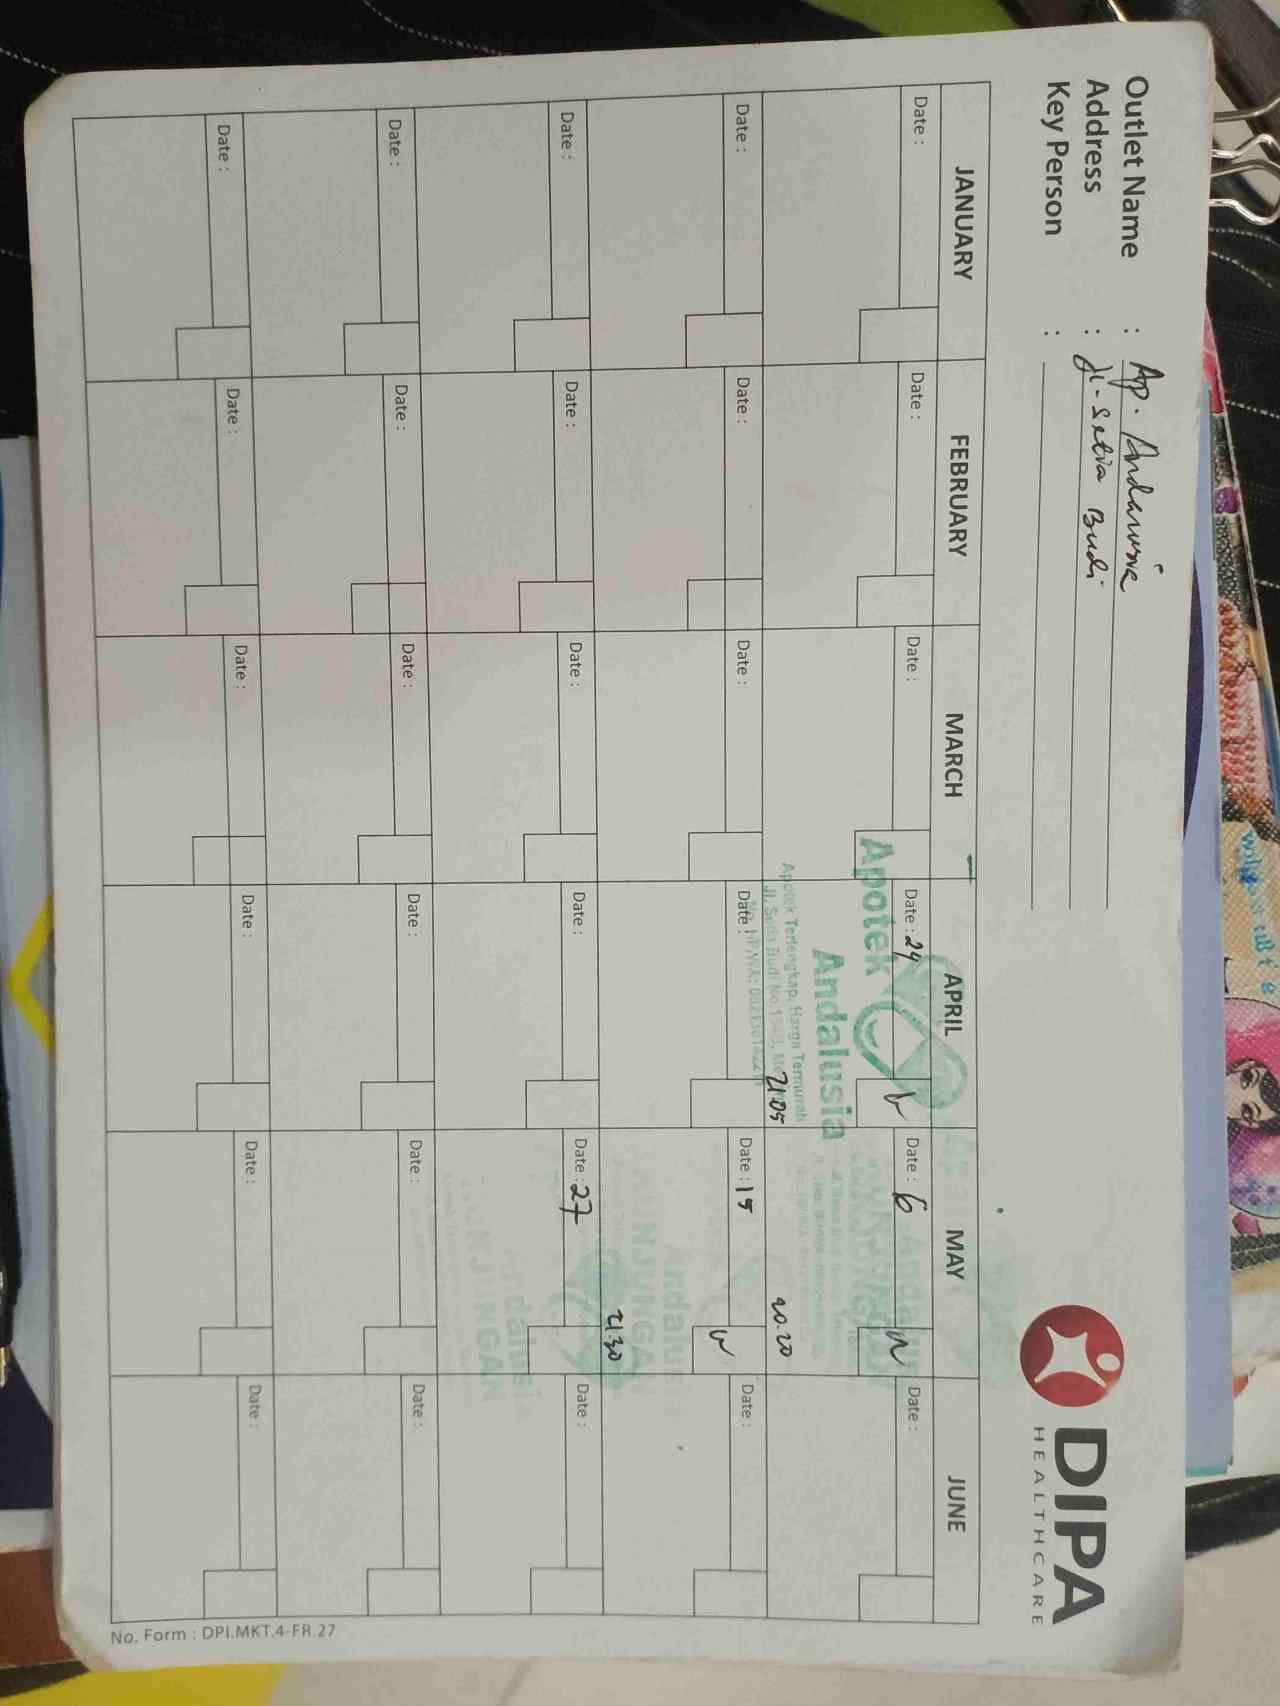 Outlet Name : Ap. Andalusia
Address : Jl. Setia Budi
Key Person :
DIPA
HEALTHCARE
JANUARY FEBRUARY MARCH APRIL MAY JUNE
Date : Date : Date : Date : 24 Date : 6 Date :
Apotek
Andalusia
Apotek Terlengkap, Harga Termurah
21.05 20.20
Date : Date : Date : Date : Date : 15 Date :
21.30
Date : Date : Date : Date : Date : 27 Date :
Date : Date : Date : Date : Date : Date :
Date : Date : Date : Date : Date : Date :
No. Form : DPI.MKT.4-FR.27